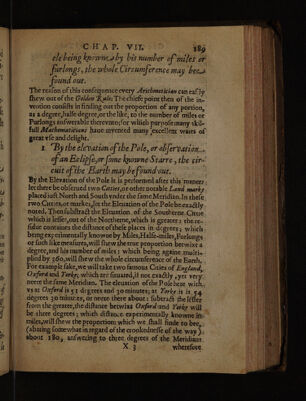 CHAP. VII. 189
cle being knowne by his number of miles or
furlongs, the whole Circumference may bee
found out.
The reason of this consequence every Arithmetician can easily
shew out of the Golden Rule: The chiefe point then of the in-
vention consists in finding out the proportion of any portion,
as a degree, halfe degree, or the like, to the number of miles or
Furlongs answerable thereunto; for which purpose many skil-
full Mathematicians have invented many excellent waies of
great use and delight.
1 By the elevation of the Pole, or observation
of an Eclipse, or some knowne Starre, the cir-
cuit of the Earth may be found out.
By the Elevation of the Pole it is performed after this manner:
let there be observed two Citties, or other notable Land marks
placed just North and South under the same Meridian. In these
two Citties, or markes, let the Elevation of the Pole be exactly
noted. Then substract the Elevation of the Southerne Citie
which is lesse, out of the Northerne, which is greater: the re-
sidue containes the distance of these places in degrees; which
being experimentally knowne by Miles, Halfe-miles, Furlongs
or such like measures, will shew the true proportion betwixt a
degree, and his number of miles; which being againe multi-
plied by 360, will shew the whole circumference of the Earth.
For example sake, we will take two famous Cities of England,
Oxford and Yorke, which are situated, if not exactly, yet very
neere the same Meridian. The elevation of the Pole here with
us at Oxford is 51 degrees and 30 minutes: at Yorke is is 54
degrees 30 minutes, or neere there about: substract the lesser
from the greater, the distance betwixt Oxford and Yorke will
be three degrees; which distance experimentally knowne in
miles, will shew the proportion: which we shall finde to bee,
(abating somewhat in regard of the crookednesse of the way)
about 180, answering to three degrees of the Meridian
X 3 wherefore